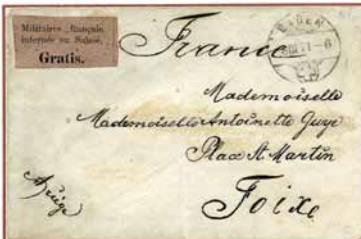 Militaires français
internés en Suisse.
Gratis.
BADEN
France
Mademoiselle
Mademoiselle Antoinette
Place St Martin
Foix